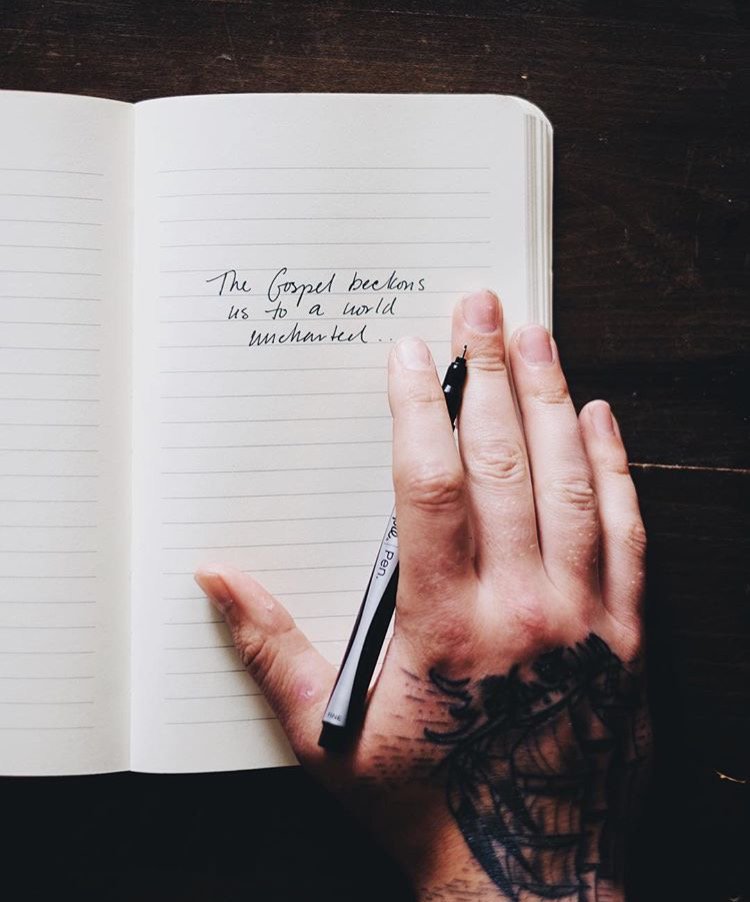 The Gospel beckons
us to a world
uncharted...
Pen.